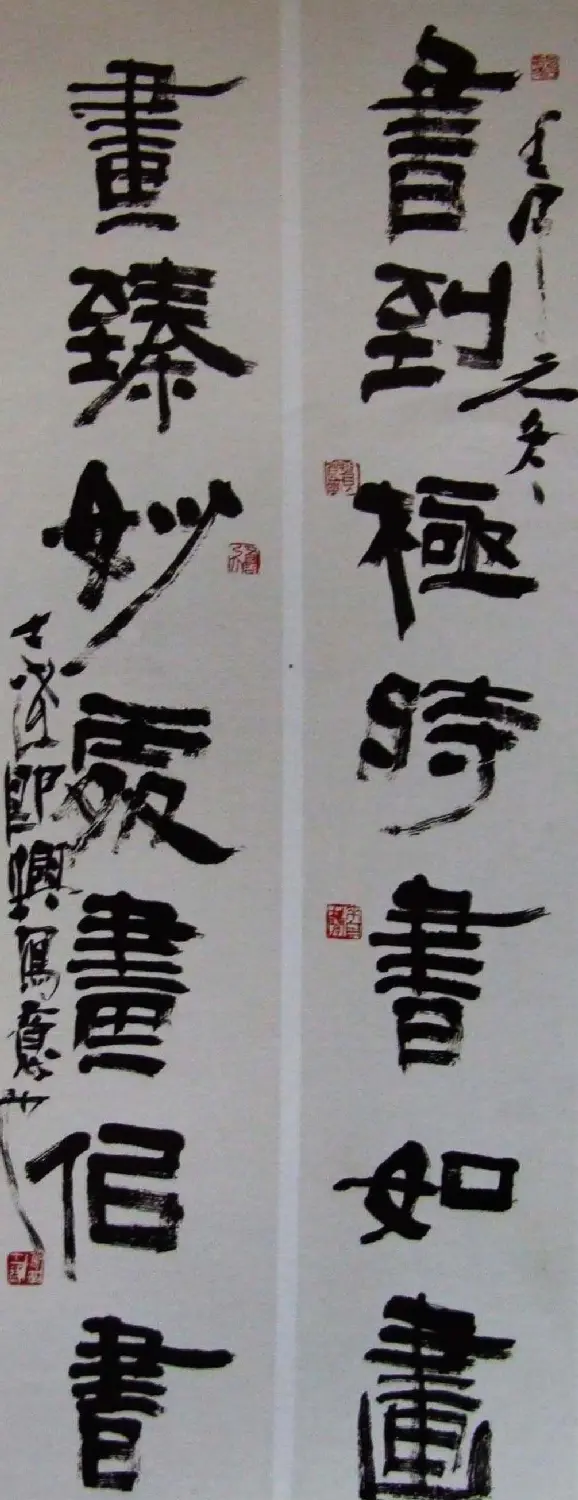 壬辰元冬
書到極時書如畫
畫臻妙處畫佀書
即興寫意